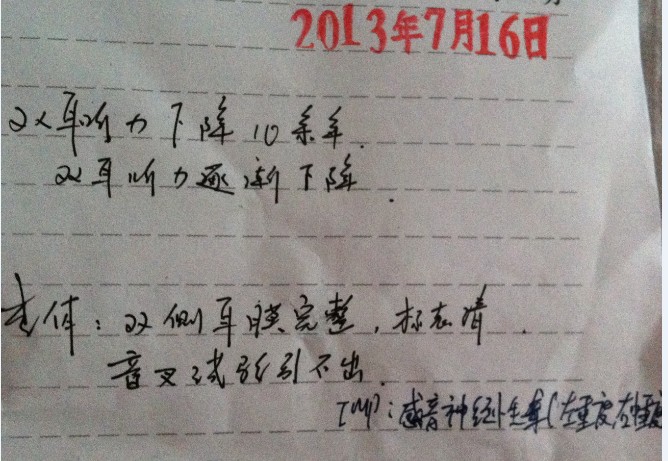 2013年7月16日
双耳听力下降10余年.
双耳听力逐渐下降.
查体：双侧耳膜完整，标志清.
音叉试验引不出.
Imp：感音神经性聋（左重度右重度